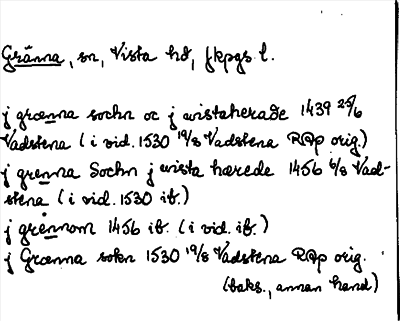 Gränna, sn, Vista hd, Jkpgs l.
j grænna sochn oc j wistaherade 1439 25/6
Vadstena (i vid. 1530 19/8 Vadstena RAp orig.)
j grenna Sochn j wista hærede 1456 6/8 Vad-
stena (i vid. 1530 ib.)
j grennom 1456 ib. (i vid. ib.)
j Grænna sokn 1530 19/8 Vadstena RAp orig.
(baks., annan hand)